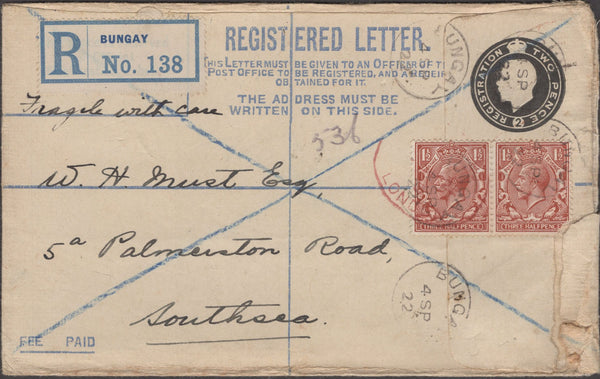 R
BUNGAY
No. 138
REGISTERED LETTER.
THIS LETTER MUST BE GIVEN TO AN OFFICER OF THE
POST OFFICE TO BE REGISTERED, AND A RECEIPT
OBTAINED FOR IT.
THE ADDRESS MUST BE
WRITTEN ON THIS SIDE.
REGISTRATION TWO PENCE
2
BUNGAY
4 SP
22
4 SP
22
Fragile with care
536
W. H. Must Esq,
5a Palmerston Road,
Southsea.
1½ 1½
THREE HALFPENCE
1½ 1½
THREE HALFPENCE
LONDON
BUNGA
4 SP
22
FEE PAID